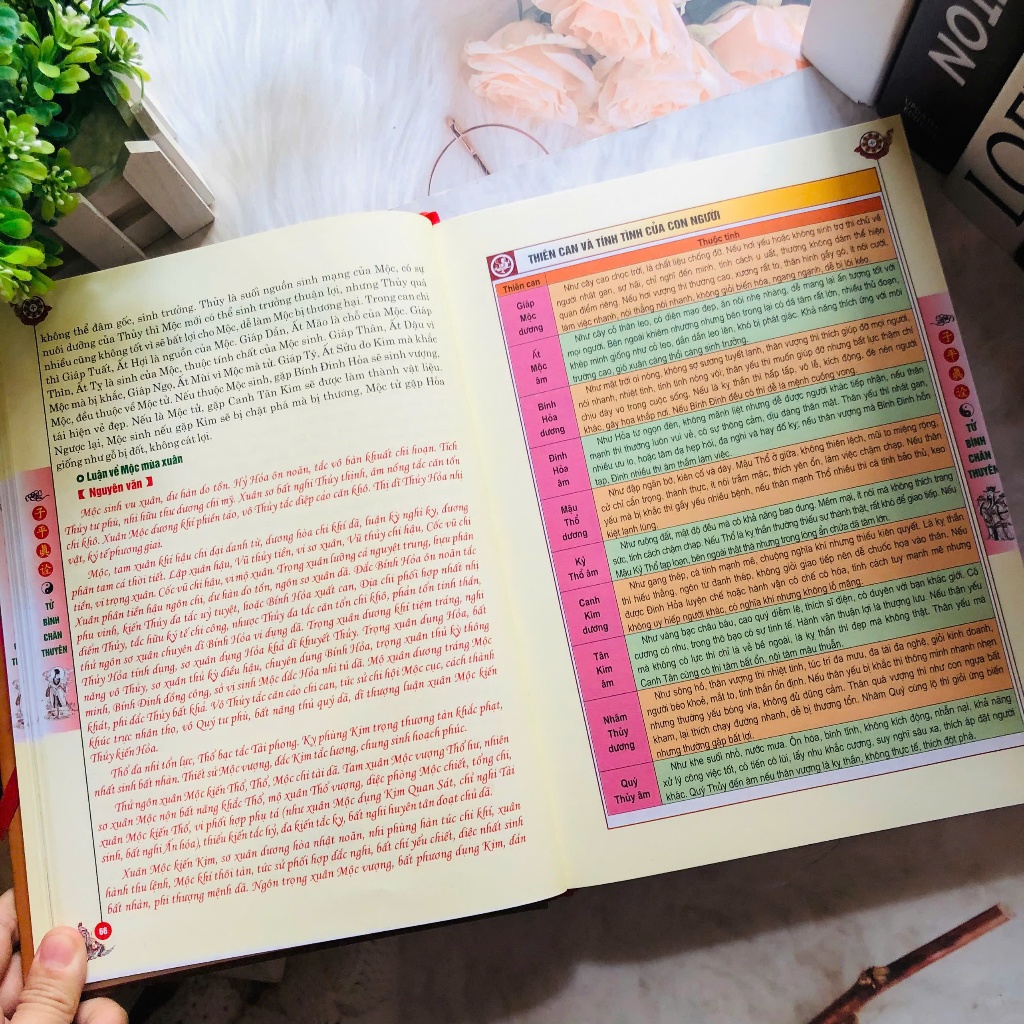 không thể đâm gốc, sinh trưởng. Thủy là suối nguồn sinh mạng của Mộc, có sự
nuôi dưỡng của Thủy thì Mộc mới có thể sinh trưởng thuận lợi, nhưng Thủy quá
nhiều cũng không tốt vì sẽ bất lợi cho Mộc, dễ làm Mộc bị thương hại. Trong can chi
thì Giáp Tuất, Ất Hợi là nguồn của Mộc. Giáp Dần, Ất Mão là chỗ của Mộc. Giáp
Thìn, Ất Tỵ là sinh của Mộc, thuộc tính chất của Mộc sinh, Giáp Thân, Ất Dậu vì
Mộc mà bị khắc, Giáp Ngọ, Ất Mùi vì Mộc mà tử. Giáp Tý, Ất Sửu do Kim mà khắc
Mộc, đều thuộc về Mộc tử. Nếu thuộc Mộc sinh, gặp Bính Đinh Hỏa sẽ sinh vượng,
tái hiện vẻ đẹp. Nếu là Mộc tử, gặp Canh Tân Kim sẽ được làm thành vật liệu.
Ngược lại, Mộc sinh nếu gặp Kim sẽ bị chặt phá mà bị thương, Mộc tử gặp Hỏa
giống như gỗ bị đốt, không cát lợi.
Luận về Mộc mùa xuân
【 Nguyên văn 】
Mộc sinh vu xuân, dư hàn do tồn. Hỷ Hỏa ôn noãn, tắc vô bàn khuất chi hoạn. Tích
Thủy tư phù, nhi hữu thư dương chi mỹ. Xuân sơ bất nghi Thủy thịnh, âm nồng tắc căn tổn
chi khô. Xuân Mộc dương khí phiền táo, vô Thủy tắc diệp cảo căn khô. Thị dĩ Thủy Hỏa nhị
vật, ký tế phương giai.
Mộc, tam xuân khí hậu chi đại danh từ, dương hòa chi khí dã, luận kỳ nghi kỵ, đương
phân tam cá thời tiết. Lập xuân hậu, Vũ thủy tiền, vi sơ xuân, Vũ thủy chi hậu, Cốc vũ chi
tiền, vi trọng xuân. Cốc vũ chi hậu, vi mộ xuân. Trọng xuân lưỡng cá nguyệt trung, hựu phân
Xuân phân tiền hậu ngôn chi, dư hàn do tồn, ngôn sơ xuân dã. Đắc Bính Hỏa ôn noãn tắc
phu vinh, kiến Thủy đa tắc uý tuyết, hoặc Bính Hỏa xuất can, Địa chi phối hợp nhất nhị
điểm Thủy, tắc hữu ký tế chi công, nhược Thủy đa tắc căn tổn chi khô, phản tổn tinh thần,
thử ngôn sơ xuân chuyên dĩ Bính Hỏa vi dụng dã. Trọng xuân dương khí tiệm tráng, nghi
Thủy Hỏa tịnh dụng, sơ xuân dụng Hỏa khả dĩ khuyết Thủy. Trọng xuân dụng Hỏa, bất
năng vô Thủy, sơ xuân thủ kỳ điều hậu, chuyên dụng Bính Hỏa, trọng xuân thủ kỳ thông
minh, Bính Đinh đồng công, sở vị sinh Mộc đắc Hỏa nhi tú dã. Mộ xuân dương tráng Mộc
khát, phi đắc Thủy bất khả. Vô Thủy tắc căn cảo chi can, tức sử chi hội Mộc cục, cách thành
khúc trực nhân thọ, vô Quý tư phù, bất năng thủ quý dã, dĩ thượng luận xuân Mộc kiến
Thủy kiến Hỏa.
Thổ đa nhi tổn lực, Thổ bạc tắc Tài phong. Kỵ phùng Kim trọng thương tàn khắc phạt,
nhất sinh bất nhàn. Thiết sử Mộc vượng, đắc Kim tắc lương, chung sinh hoạch phúc.
Thử ngôn xuân Mộc kiến Thổ, Thổ, Mộc chi tài dã. Tam xuân Mộc vượng Thổ hư, nhiên
sơ xuân Mộc nộn bất năng khắc Thổ, mộ xuân Thổ vượng, diệc phòng Mộc chiết, tổng chi,
xuân Mộc kiến Thổ, vi phối hợp phụ tá (như xuân Mộc dụng Kim Quan Sát, chỉ nghi Tài
sinh, bất nghi Ấn hóa), thiểu kiến tắc hỷ, đa kiến tắc kỵ, bất nghi huyên tân đoạt chủ dã.
Xuân Mộc kiến Kim, sơ xuân dương hòa nhật noãn, nhi phùng hàn túc chi khí, xuân
hành thu lệnh, Mộc khí thôi tán, tức sử phối hợp đắc nghi, bất chí yểu chiết, diệc nhất sinh
bất nhàn, phi thượng mệnh dã. Ngôn trọng xuân Mộc vượng, bất phương dụng Kim, đán
66
子平真詮
TỬ
BÌNH
CHÂN
THUYÊN
THIÊN CAN VÀ TÍNH TÌNH CỦA CON NGƯỜI
Thiên can
Thuộc tính
Giáp
Mộc
dương
Như cây cao chọc trời, là chất liệu chống đỡ. Nếu hơi yếu hoặc không sinh trợ thì chủ về
người nhát gan, sợ hãi, chỉ nghĩ đến mình, tính cách u uất, thường không dám thể hiện
quan điểm riêng. Nếu hơi vượng thì thương cao, xương rất to, thân hình gầy gò, ít nói cười,
làm việc nhanh, nói thẳng nói nhanh, không giỏi biến hóa, ngang ngạnh, dễ bị lôi kéo
Ất
Mộc
âm
Như cây cỏ thân leo, có diện mạo đẹp, ăn nói nhẹ nhàng, dễ mang lại ấn tượng tốt với
mọi người. Bên ngoài khiêm nhường nhưng bên trong lại có dã tâm rất lớn, nhiều thủ đoạn,
khép mình giống như cỏ leo, dần dần leo lên, khó bị phát giác. Khả năng thích ứng với môi
trường cao, gió xuân càng thổi càng sinh trưởng.
Bính
Hỏa
dương
Như mặt trời oi nóng, không sợ sương tuyết lạnh, thân vượng thì thích giúp đỡ mọi người,
nói nhanh, nhiệt tình, tính tình nóng vội; thân yếu thì muốn giúp đỡ nhưng bất lực thậm chí
chịu dày vò trong cuộc sống. Nếu là kỵ thần thì hấp tấp, vô lễ, kích động, đè nén người
khác, gây họa khắp nơi. Nếu Bính Đinh đều có thì dễ là mệnh cuồng vọng.
Đinh
Hỏa
âm
Như Hỏa từ ngọn đèn, không mãnh liệt nhưng dễ được người khác tiếp nhận, nếu thân
mạnh thì thường luôn vui vẻ, có sự thông cảm, dịu dàng thân mật. Thân yếu thì nhát gan,
nhiều ưu lo, hoặc tâm dạ hẹp hòi, đa nghi và hay đố kỵ; nếu thân vượng mà Bính Đinh hỗn
tạp, Đinh nhiều thì âm thầm làm việc.
Mậu
Thổ
dương
Như đập ngăn bờ, kiên cố và dày. Mậu Thổ ở giữa, không thiên lệch, mũi to miệng rộng,
cử chỉ cẩn trọng, thành thực, ít nói trầm mặc, thích yên ổn, làm việc chậm chạp. Nếu thân
yếu mà bị khắc thì gây yếu nhiều bệnh, nếu thân mạnh Thổ nhiều thì cá tính bảo thủ, keo
kiệt lạnh lùng.
Kỷ
Thổ âm
Như ruộng đất, mật độ đều mà có khả năng bao dung. Mềm mại, ít nói mà không thích trang
sức, tính cách chậm chạp. Nếu Thổ là kỵ thần thường thiếu sự thành thật, rất khó để giao tiếp. Nếu
Mậu Kỷ Thổ tạp loạn, bên ngoài thật thà nhưng trong lòng ẩn chứa dã tâm lớn.
Canh
Kim
dương
Như gang thép, cá tính mạnh mẽ, chuộng nghĩa khí nhưng thiếu kiên quyết. Là kỵ thần
thì hiếu thắng, ngôn từ đanh thép, không giỏi giao tiếp nên dễ chuốc họa vào thân. Nếu
được Đinh Hỏa luyện chế hoặc hành vận có chế có hóa, tính cách tuy mạnh mẽ nhưng
không uy hiếp người khác, có nghĩa khí nhưng không lỗ mãng.
Tân
Kim
âm
Như vàng bạc châu báu, cao quý diễm lệ, thích sĩ diện, có duyên với bạn khác giới. Có
cương có nhu, trong thô bạo có sự tinh tế. Hành vận thuận lợi là thượng lưu. Nếu thân yếu
mà không có lực thì chỉ là vẻ bề ngoài, là kỵ thần thì đẹp mà không thật. Thân yếu mà
Canh Tân cùng có thì tâm bất ổn, nói tám mâu thuẫn.
Nhâm
Thủy
dương
Như sông hồ, thân vượng thì nhiệt tình, túc trí đa mưu, đa tài đa nghệ, giỏi kinh doanh,
người béo khoẻ, mắt to, tinh thần ổn định. Nếu thân yếu bị khắc thì thông minh nhanh nhẹn
nhưng thường yếu bóng vía, không đủ dũng cảm. Thân quá vượng thì như con ngựa bất
kham, lại thích chạy đường nhanh, dễ bị thương tổn. Nhâm Quý cùng lộ thì giỏi ứng biến
nhưng thường gặp bất lợi.
Quý
Thủy âm
Như khe suối nhỏ, nước mưa. Ôn hòa, bình tĩnh, không kích động, nhẫn nại, khả năng
xử lý công việc tốt, có tiến có lùi, lấy nhu khắc cương, suy nghĩ sâu xa, thích áp đặt người
khác. Quý Thủy đến âm nếu thân vượng là kỵ thần, không thực tế, thích đợt phá.
子平真詮
TỬ
BÌNH
CHÂN
THUYÊN